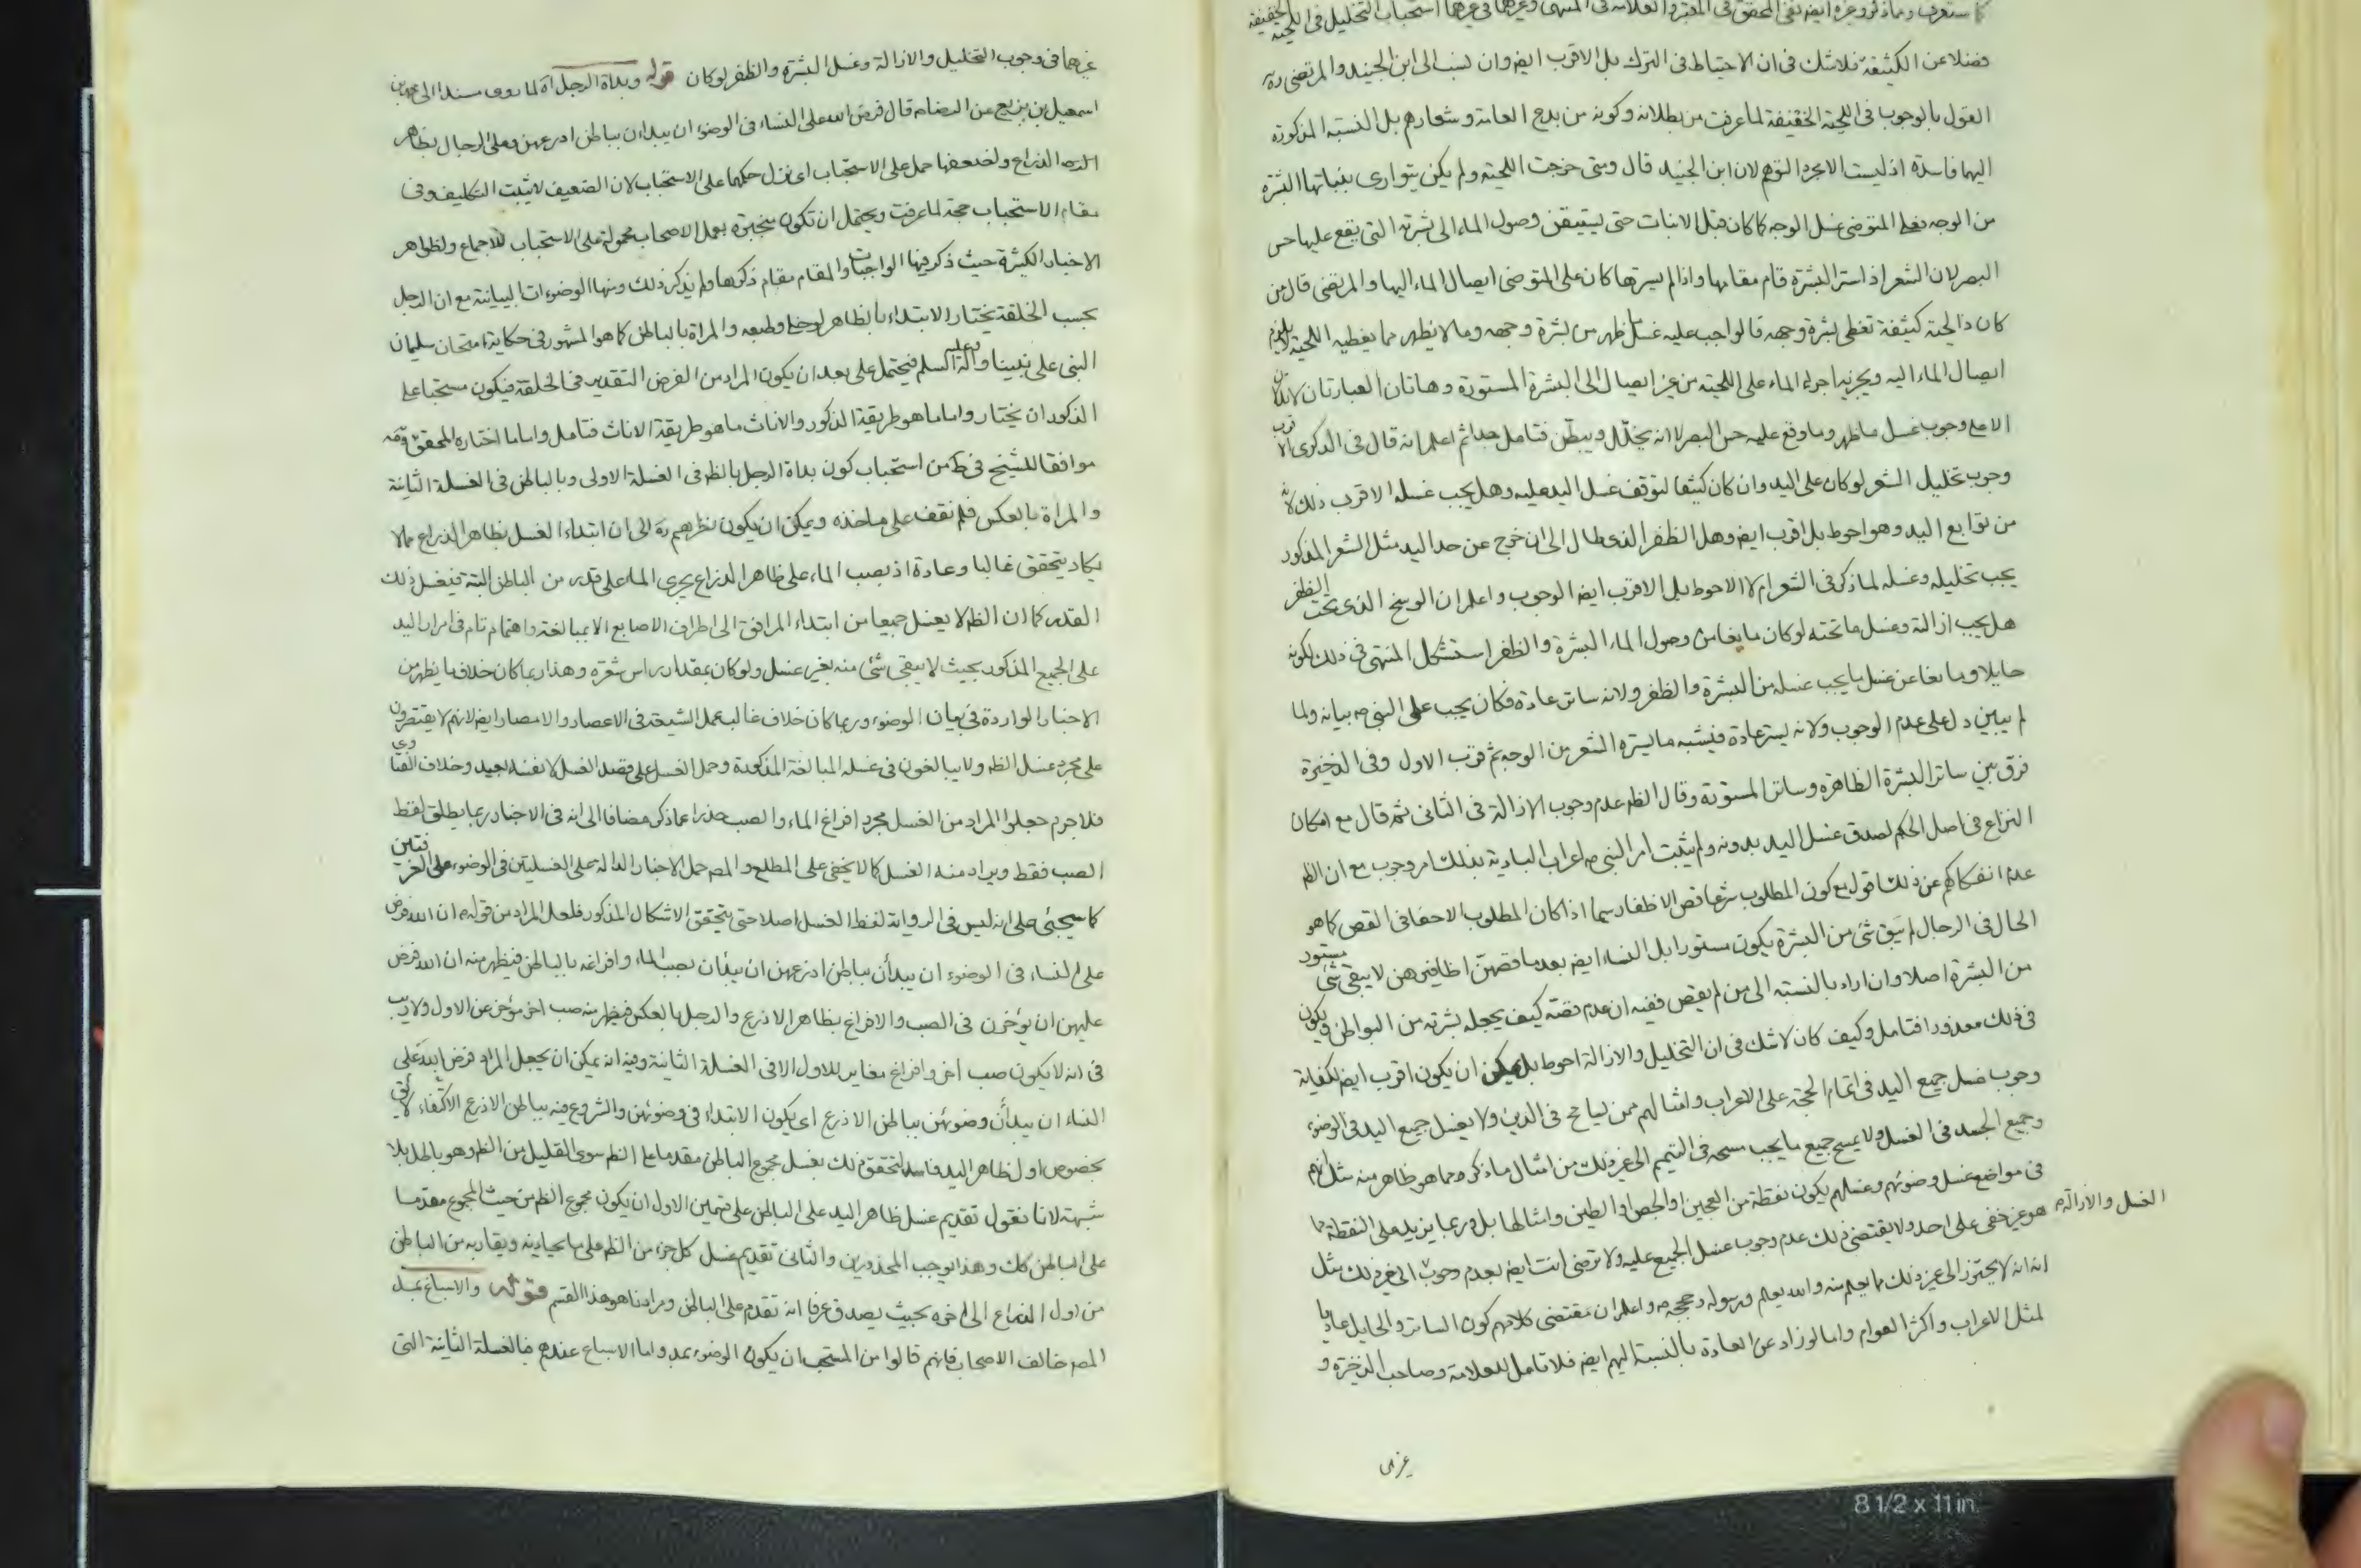 كما ستعرف وماذكر وغيره ايضا نفى المحقق فى المعتبر والعلامة فى المنتهى وغيرهما فى غيرهما استحباب التخليل فى اللحية الخفيفة
فضلا عن الكثيفة فلا شك فى ان الاحتياط فى الترك بل الاقرب ايضا وان نسب الى ابن الجنيد والمرتضى ره
القول بالوجوب فى اللحية الخفيفة لما عرفت من بطلانه وكونه من بدع العامة وشعارهم بل النسبة المذكورة
اليهما فاسدة اذ ليست الا مجرد التوهم لان ابن الجنيد قال ومتى خرجت اللحية ولم يكن يتوارى بنباتها البشرة
من الوجه فعلى المتوضى غسل الوجه كما كان قبل الانبات حتى يستيقن وصول الماء الى بشرته التى يقع عليها حس
البصر لان الشعر اذا ستر البشرة قام مقامها واذا لم يسترها كان على المتوضى ايصال الماء اليها والمرتضى قال من
كان ذا لحية كثيفة تغطى بشرة وجهه فالواجب عليه غسل ما ظهر من بشرة وجهه وما لا يظهر مما يغطيه اللحية لا يلزم
ايصال الماء اليه ويجزيه اجراء الماء على اللحية من غير ايصال الى البشرة المستورة وهاتان العبارتان لا تدلان
الا على وجوب غسل ما ظهر وما وقع عليه حس البصر لا انه يخلل ويبطن فتامل جدا ثم اعلم انه قال فى الذكرى الاقرب
وجوب تخليل الشعر لو كان على اليد وان كان كثيفا لتوقف غسل اليد عليه وهل يجب غسله الاقرب ذلك لانه
من توابع اليد وهو احوط بل اقرب ايضا وهل الظفر الذى طال الى ان خرج عن حد اليد مثل الشعر المذكور
يجب تخليله وغسله لما ذكر فى الشعر ام لا الاحوط بل الاقرب ايضا الوجوب واعلم ان الوسخ الذى تحت الظفر
هل يجب ازالته وغسل ما تحته لو كان مانعا من وصول الماء البشرة والظفر استشكل المنتهى فى ذلك لكونه
حايلا ومانعا عن غسل ما يجب غسله من البشرة والظفر ولانه ساتر عادة فكان يجب على النبى ص بيانه ولما
لم يبين دل على عدم الوجوب ولانه يستر عادة فيشبه ما يستره الشعر من الوجه ثم قرب الاول وفى الذخيرة
فرق بين ساتر البشرة الظاهرة وساتر المستورة وقال الظ عدم وجوب الازالة فى الثانى ثم قال مع امكان
النزاع فى اصل الحكم لصدق غسل اليد بدونه ولم يثبت امر النبى ص اعراب البادية بذلك امر وجوب مع ان الظ
عدم انفكاكهم عن ذلك اقول مع كون المطلوب شرعا قص الاظفار سيما اذا كان المطلوب الاحفا فى القص كما هو
الحال فى الرجال لم يبق شئ من البشرة يكون مستورا بل النساء ايضا بعد ما قصصن اظافيرهن لا يبقى شئ مستور
من البشرة اصلا وان اراد بالنسبة الى من لم يقص ففيه ان عدم قصه كيف يجعله بشرته من البواطن ويكون
فى ذلك معذورا فتامل وكيف كان لا شك فى ان التخليل والازالة احوط بل يمكن ان يكون اقرب ايضا لكفاية
وجوب غسل جميع اليد فى اتمام الحجة على الاعراب وامثالهم ممن يسامح فى الدين ولا يغسل جميع اليد فى الوضوء
وجميع الجسد فى الغسل ولا يمسح جميع ما يجب مسحه فى التيمم الى غير ذلك من امثال ما ذكره مما هو ظاهر منه مثل انهم
فى مواضع غسل وضوئهم وغسلهم يكون نقطة من العجين او الجص او الطين وامثالها بل وربما يزيد على النقطة مما
هو غير خفى على احد ولا يقتضى ذلك عدم وجوب غسل الجميع عليه ولا ترضى انت ايضا بعدم وجوب الى غير ذلك مثل
الغسل والازالة
انه لا يحترز الى غير ذلك مما يعلم منه والله يعلم ورسوله وحججه ص واعلم ان مقتضى كلامهم كون الساتر والحايل عاديا
لمثل الاعراب واكثر العوام واما لو زاد عن العادة بالنسبة اليهم ايضا فلا تامل للعلامة وصاحب الذخيرة و
غيرهما
غيرهما فى وجوب التخليل والازالة وغسل البشرة والظفر لو كان قوله وبداة الرجل اه لما روى مسندا الى محمد بن
اسمعيل بن بزيع عن الرضا ع قال فرض الله على النساء فى الوضوء ان يبدان بباطن اذرعهن وعلى الرجال بظاهر
الذراع ولضعفها حمل على الاستحباب اى نزل حكمها على الاستحباب لان الضعيف لا يثبت التكليف وفى
مقام الاستحباب حجة لما عرفت ويحتمل ان تكون منجبرة بعمل الاصحاب محمولة على الاستحباب للاجماع ولظواهر
الاخبار الكثيرة حيث ذكر فيها الواجبات والمقام مقام ذكرها ولم يذكر ذلك ومنها الوضوءات البيانية مع ان الرجل
بحسب الخلقة يختار الابتداء بالظاهر لوضع وطبعه والمراة بالباطن كما هو المشهور فى حكاية امتحان سليمان
النبى على نبينا واله وعليه السلم فيحتمل على بعد ان يكون المراد من الفرض التقدير فى الخلقة فيكون مستحبا على
الذكور ان يختاروا ما هو طريقة الذكور والاناث ما هو طريقة الاناث فتامل واما ما اختاره المحقق وقه
موافقا للشيخ فى ط من استحباب كون بداة الرجل بالظ فى الغسلة الاولى وبالباطن فى الغسلة الثانية
والمراة بالعكس فلم نقف على ماخذه ويمكن ان يكون نظرهم ره الى ان ابتداء الغسل بظاهر الذراع مما لا
يكاد يتحقق غالبا وعادة اذ بصب الماء على ظاهر الذراع يجرى الماء على قدر من الباطن البتة فيغسل ذلك
القدر كما ان الظ لا يغسل جميعا من ابتداء المرافق الى اطراف الاصابع الا بمبالغة واهتمام تام فى امرار اليد
على الجميع المذكور بحيث لا يبقى شئ منه بغير غسل ولو كان بمقدار راس شعرة وهذا ربما كان خلاف ما يظهر من
الاخبار الواردة فى بيان الوضوء وربما كان خلاف غالب عمل الشيعة فى الاعصار والامصار ايضا لانهم لا يقتصرون
على مجرد غسل الظ ولا يبالغون فى غسله المبالغة المذكورة وحمل الغسل على قصد الغسل لا نفسه بعيد وخلاف الفتاوى
فلا جرم جعلوا المراد من الغسل مجرد افراغ الماء والصب حذرا عما ذكر مضافا الى انه فى الاخبار ربما يطلق لفظ
الصب فقط ويراد منه الغسل كما لا يخفى على المطلع والمص حمل الاخبار الدالة على الغسلتين فى الوضوء على الغرفتين
كما سيجئ على انه ليس فى الرواية لفظ الغسل اصلا حتى يتحقق الاشكال المذكور فلعل المراد من قوله ع ان الله فرض
على النساء فى الوضوء ان يبدأن بباطن اذرعهن ان يبدأن بصب الماء وافراغه بالباطن فيظهر منه ان الله فرض
عليهن ان يؤخرن فى الصب والافراغ بظاهر الاذرع والرجل بالعكس فيظهر منه صب اخر مؤخر عن الاول ولا ريب
فى انه لا يكون صب آخر وافراغ مغاير للاول الا فى الغسلة الثانية وفيه انه يمكن ان يجعل المراد فرض الله على
النساء ان يبدأن وضوئهن بباطن الاذرع اى يكون الابتداء فى وضوئهن والشروع فيه بباطن الاذرع الاكتفاء لا يق
بخصوص اول ظاهر اليد فاسد لتحقق ذلك بغسل مجموع الباطن مقدما على الظ سوى القليل من الظ وهو باطل بلا
شبهة لانا نقول تقديم غسل ظاهر اليد على الباطن على قسمين الاول ان يكون مجموع الظ من حيث المجموع مقدما
على الباطن كك وهذا يوجب المحذورين والثانى تقديم غسل كل جزء من الظ على ما يحاذيه ويقاربه من الباطن
من اول الذراع الى اخره بحيث يصدق عرفا انه تقدم على الباطن ومرادنا هو هذا القسم قوله والاسباغ بمد
المص خالف الاصحاب فانهم قالوا من المستحب ان يكون الوضوء بمد واما الاسباغ عندهم فالغسلة الثانية التى
8 1/2 x 11 in.